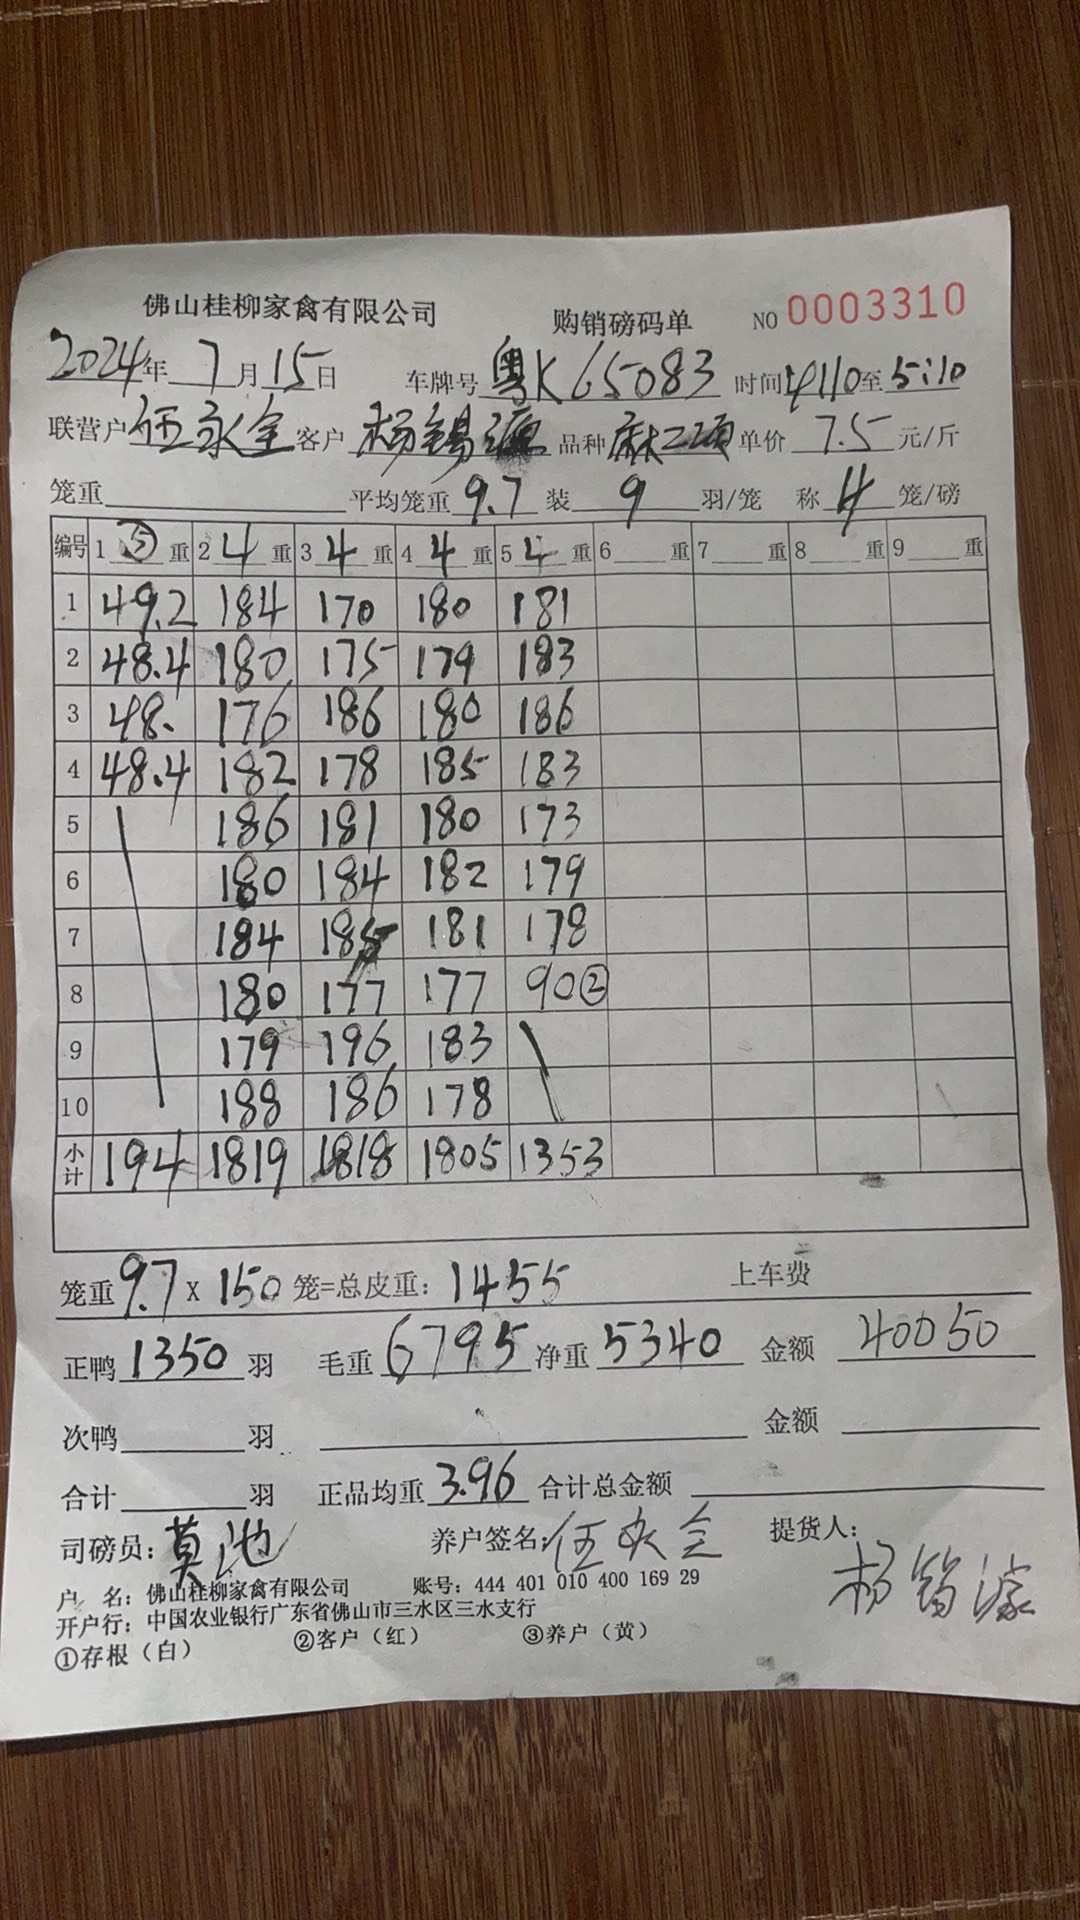 佛山桂柳家禽有限公司 购销磅码单 NO 0003310
2024年 7 月 15 日 车牌号 粤K65083 时间 4110 至 5:10
联营户 伍永全 客户 杨锡源 品种 麻二项 单价 7.5 元/斤
笼重 平均笼重 9.7 装 9 羽/笼 称 4 笼/磅
编号 1 ⑤ 重 2 4 重 3 4 重 4 4 重 5 4 重 6 重 7 重 8 重 9 重
1 49.2 184 170 180 181
2 48.4 180 175 179 183
3 48. 176 186 180 186
4 48.4 182 178 185 183
5 186 181 180 173
6 180 184 182 179
7 184 185 181 178
8 180 177 177 90②
9 179 196 183
10 188 186 178
小计 194 1819 1818 1805 1353
笼重 9.7 X 150 笼=总皮重: 1455 上车费
正鸭 1350 羽 毛重 6795 净重 5340 金额 40050
次鸭 羽 金额
合计 羽 正品均重 3.96 合计总金额
司磅员: 莫池 养户签名: 伍永全 提货人: 杨锡源
户 名: 佛山桂柳家禽有限公司 账号: 444 401 010 400 169 29
开户行: 中国农业银行广东省佛山市三水区三水支行
①存根（白） ②客户（红） ③养户（黄）